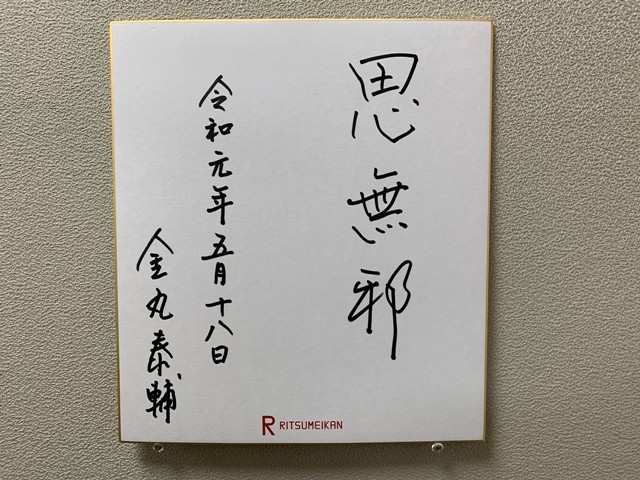 思無邪
令和元年五月十八日
金丸泰輔
R RITSUMEIKAN